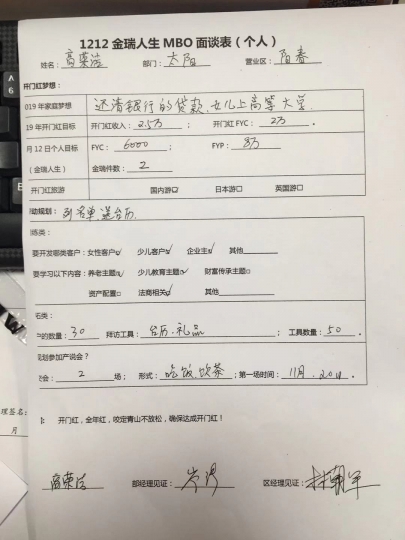 1212金瑞人生MBO面谈表（个人）
姓名：高荣洁 部门：太阳 营业区：阳春
开门红梦想：
019年家庭梦想 还清银行的贷款,女儿上高等大学.
19年开门红目标 开门红收入：2.5万； 开门红FYC：2万.
月12日个人目标 FYC：6000； FYP：8万
（金瑞人生） 金瑞件数：2
开门红旅游 国内游☑ 日本游□ 英国游□
动规划：列名单,送台历.
练类：
要开发哪类客户：女性客户☑ 少儿客户☑ 企业主☑ 其他
要学习以下内容：养老主题☑ 少儿教育主题☑ 财富传承主题□
资产配置□ 法商相关☑ 其他
名类：
户的数量：30 拜访工具：台历.礼品； 工具数量：50.
规划参加产说会？
会：2场； 形式：吃饭,饮茶；第一场时间：11月.20
：开门红，全年红，咬定青山不放松，确保达成开门红！
高荣洁 部经理见证： 区经理见证：
理签名：
月